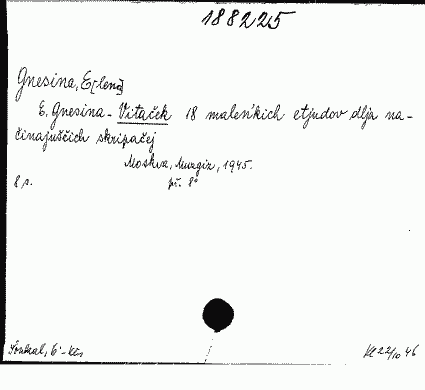 188225
Gnesina, E[lena]
E. Gnesina - Vitaček 18 malen'kich etjudov dlja na-
činajuščich skripačej
Moskva, Muzgiz, 1945.
8 s. 8°
22/10 46